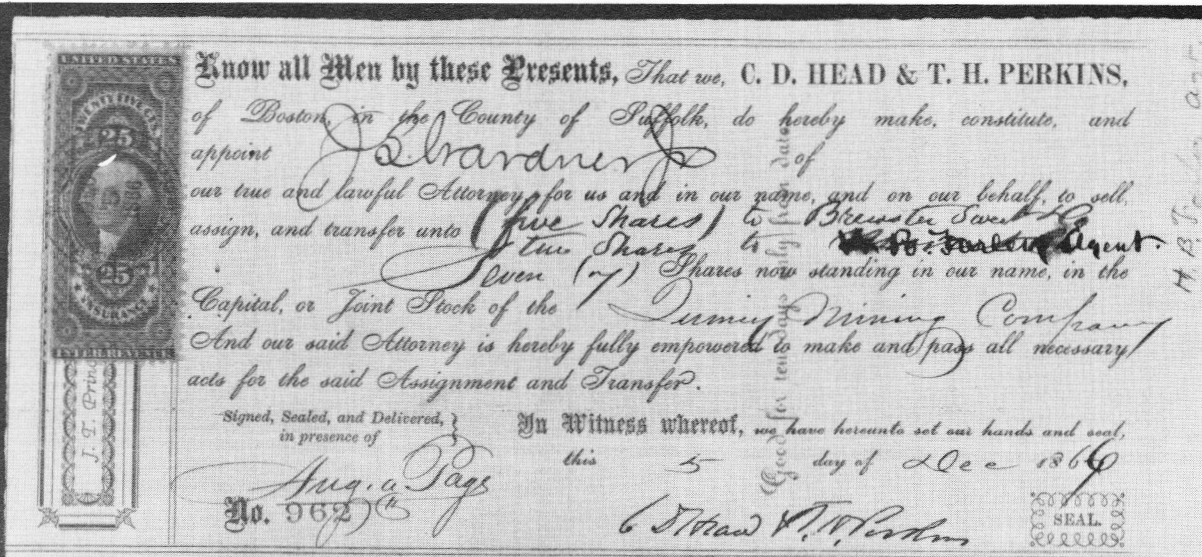 UNITED STATES
TWENTY FIVE CTS.
25
25
INSURANCE
INTER. REVENUE
Know all Men by these Presents, That we, C. D. HEAD & T. H. PERKINS,
of Boston, in the County of Suffolk, do hereby make, constitute, and
appoint J L Gardner Jr of
our true and lawful Attorney, for us and in our name, and on our behalf, to sell,
assign, and transfer unto (five Shares) to Brewster Sweet & Co
two Shares to Agent.
Seven (7) Shares now standing in our name, in the
Capital, or Joint Stock of the Mining Company
And our said Attorney is hereby fully empowered to make and pass all necessary
acts for the said Assignment and Transfer.
Signed, Sealed, and Delivered,
in presence of
In Witness whereof, we have hereunto set our hands and seal,
this 5 day of Dec 1866
Aug. a. Page
No. 962
C D Head & T. H. Perkins
SEAL.
Good for ten days only from date
J. T. Prince